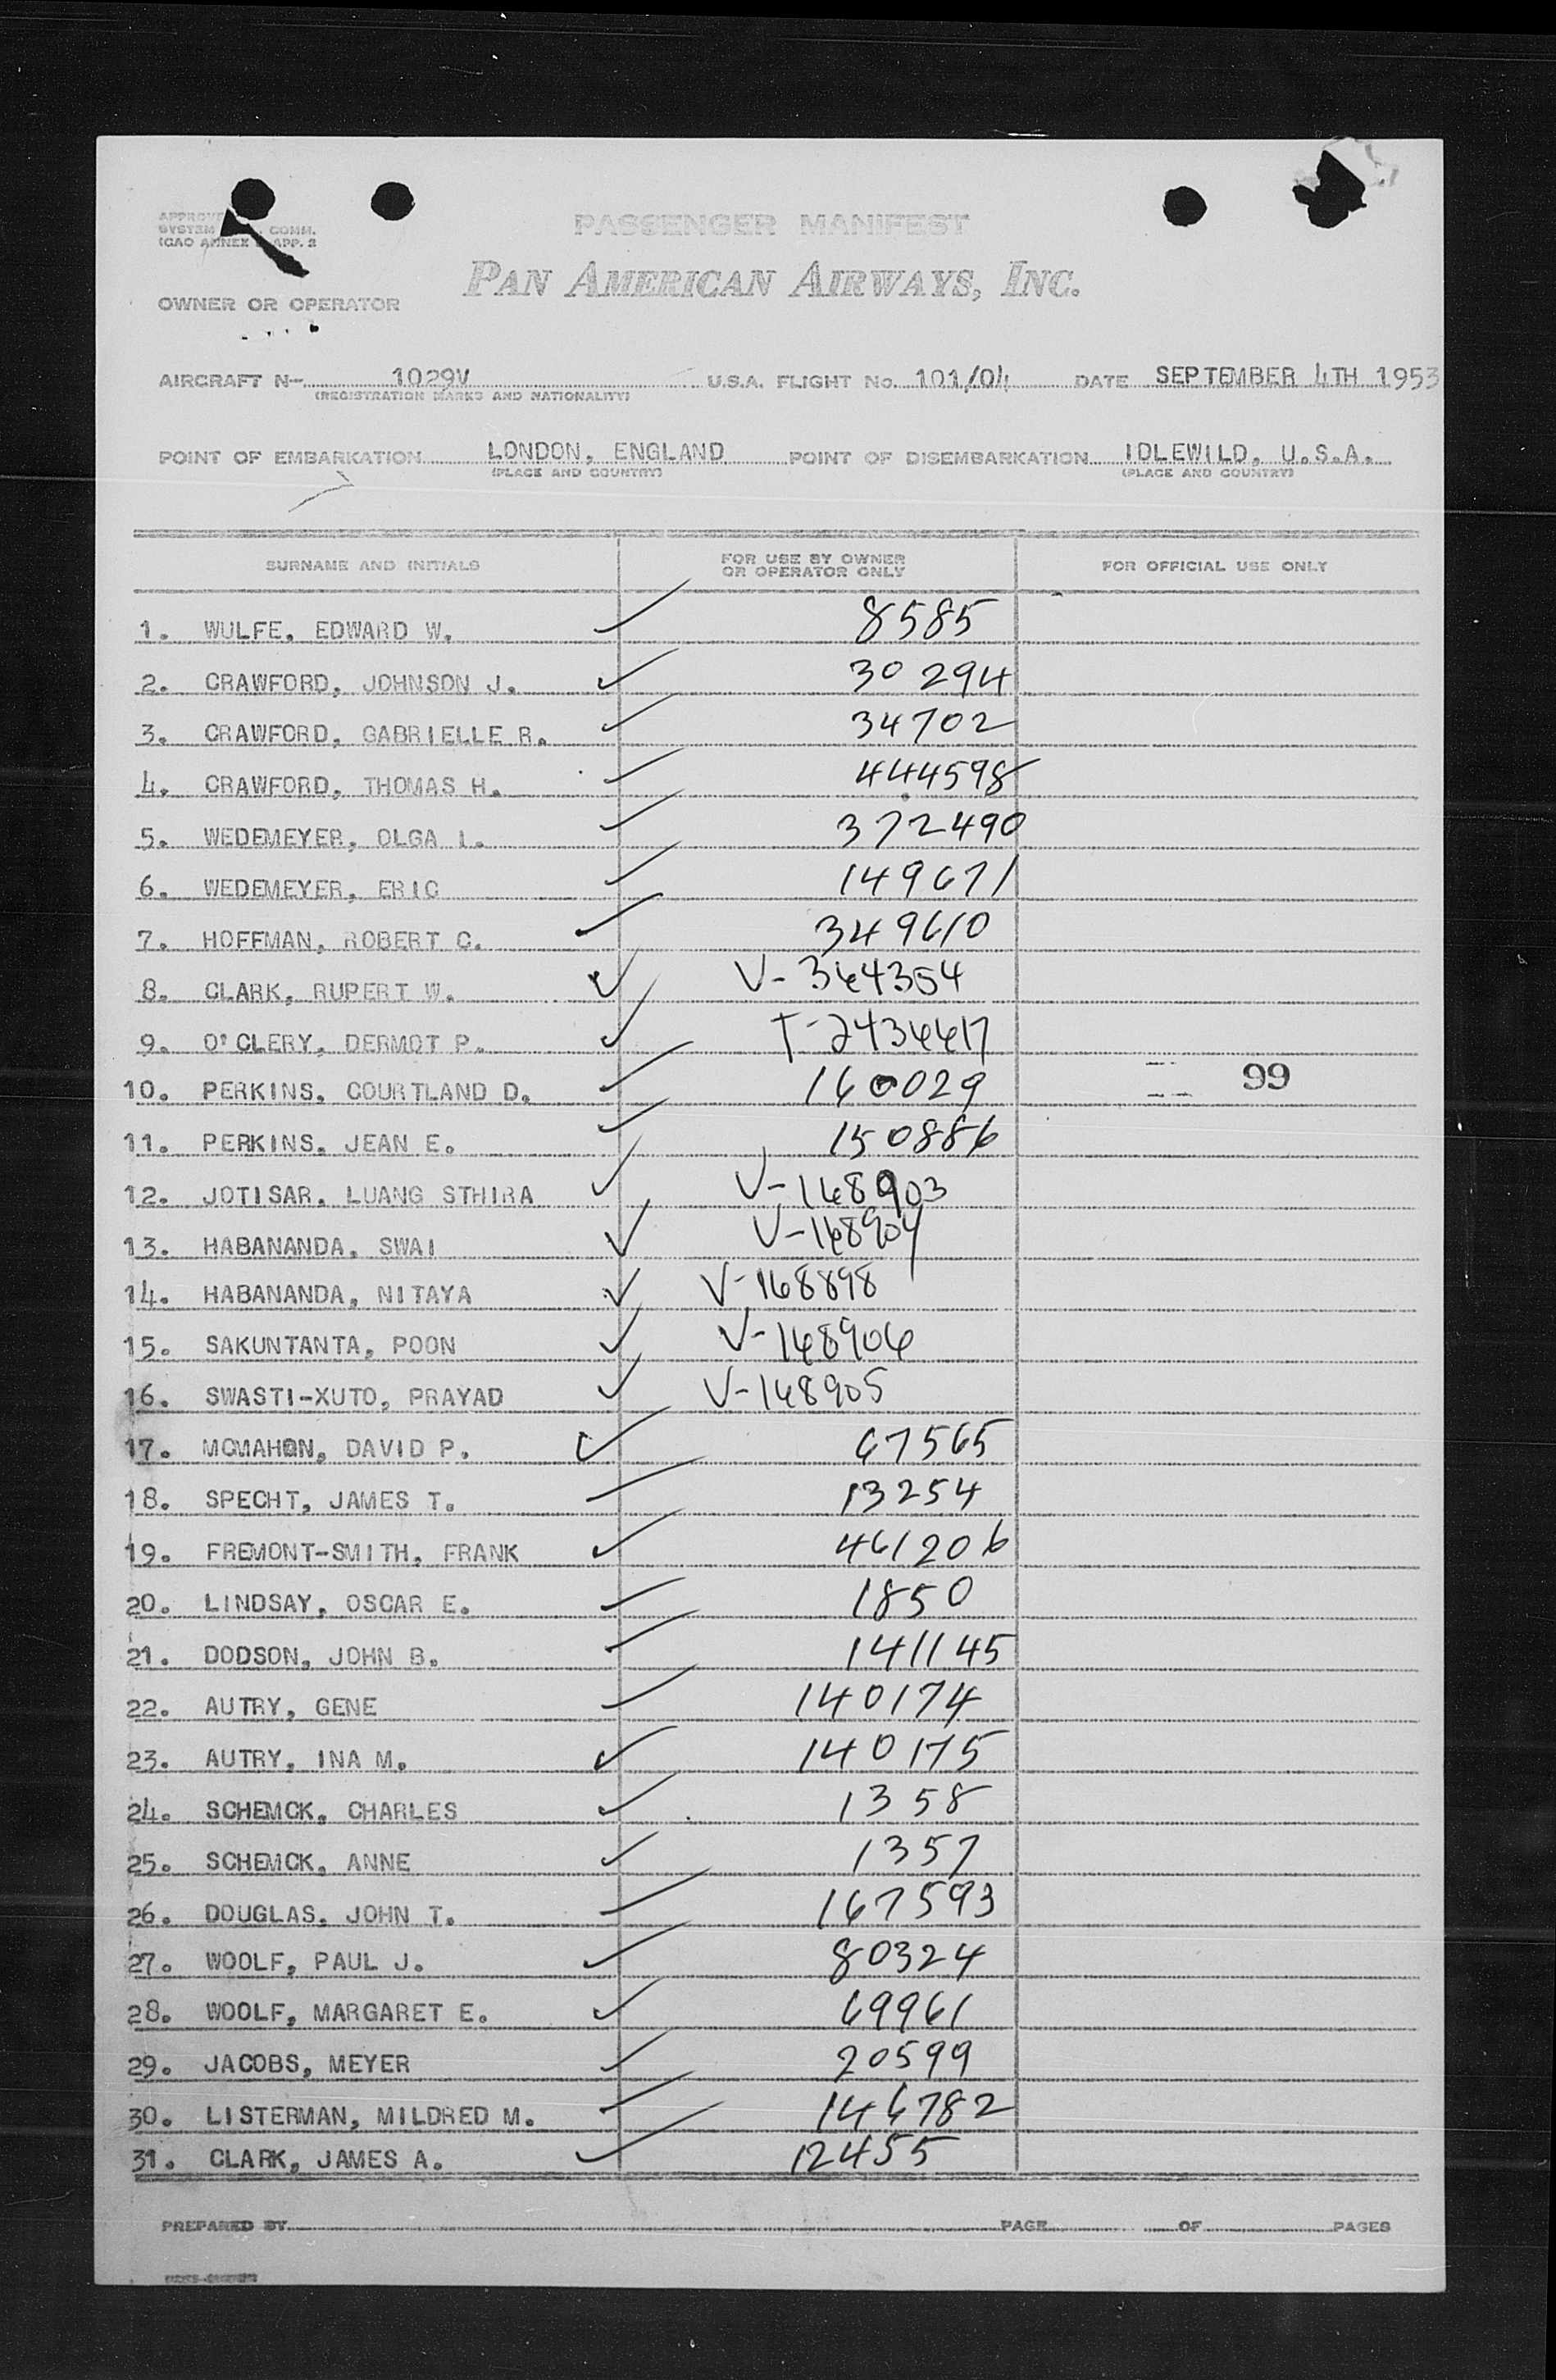 PASSENGER MANIFEST
SYSTEM COMM.
ICAO ANNEX APP. 2
PAN AMERICAN AIRWAYS, INC.
OWNER OR OPERATOR
AIRCRAFT N- 1029V U.S.A. FLIGHT No. 101/04 DATE SEPTEMBER 4TH 1953
(REGISTRATION MARKS AND NATIONALITY)
POINT OF EMBARKATION LONDON, ENGLAND POINT OF DISEMBARKATION IDLEWILD, U.S.A.
(PLACE AND COUNTRY) (PLACE AND COUNTRY)
SURNAME AND INITIALS FOR USE BY OWNER OR OPERATOR ONLY FOR OFFICIAL USE ONLY
1. WULFE, EDWARD W. 8585
2. CRAWFORD, JOHNSON J. 30294
3. CRAWFORD, GABRIELLE R. 34702
4. CRAWFORD, THOMAS H. 444598
5. WEDEMEYER, OLGA I. 372490
6. WEDEMEYER, ERIC 149671
7. HOFFMAN, ROBERT C. 349610
8. CLARK, RUPERT W. V-364354
9. O'CLERY, DERMOT P. T-2436617
10. PERKINS, COURTLAND D. 160029 99
11. PERKINS, JEAN E. 150886
12. JOTISAR, LUANG STHIRA V-168903
13. HABANANDA, SWAI V-168904
14. HABANANDA, NITAYA V-168898
15. SAKUNTANTA, POON V-168906
16. SWASTI-XUTO, PRAYAD V-168905
17. MCMAHON, DAVID P. 67565
18. SPECHT, JAMES T. 13254
19. FREMONT-SMITH, FRANK 461206
20. LINDSAY, OSCAR E. 1850
21. DODSON, JOHN B. 141145
22. AUTRY, GENE 140174
23. AUTRY, INA M. 140175
24. SCHEMCK, CHARLES 1358
25. SCHEMCK, ANNE 1357
26. DOUGLAS, JOHN T. 167593
27. WOOLF, PAUL J. 80324
28. WOOLF, MARGARET E. 69961
29. JACOBS, MEYER 20599
30. LISTERMAN, MILDRED M. 146782
31. CLARK, JAMES A. 12455
PREPARED BY PAGE OF PAGES